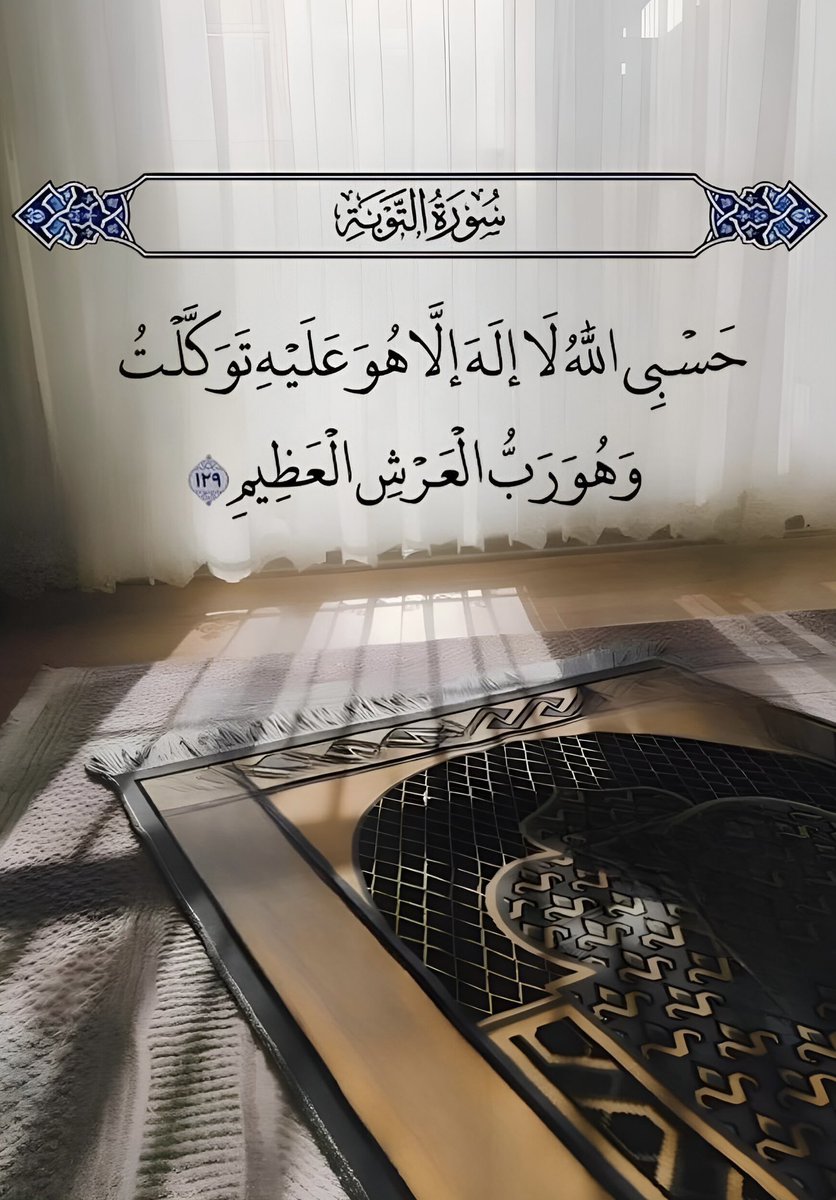 سُورَةُ التَّوْبَةِ
حَسْبِي اللَّهُ لَا إِلَهَ إِلَّا هُوَ عَلَيْهِ تَوَكَّلْتُ
وَهُوَ رَبُّ الْعَرْشِ الْعَظِيمِ ١٢٩